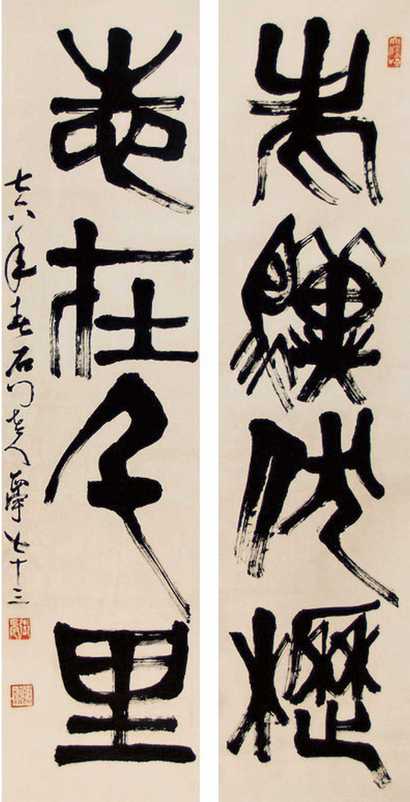 老驥伏櫪
志在千里
七六年春石门老人七十三